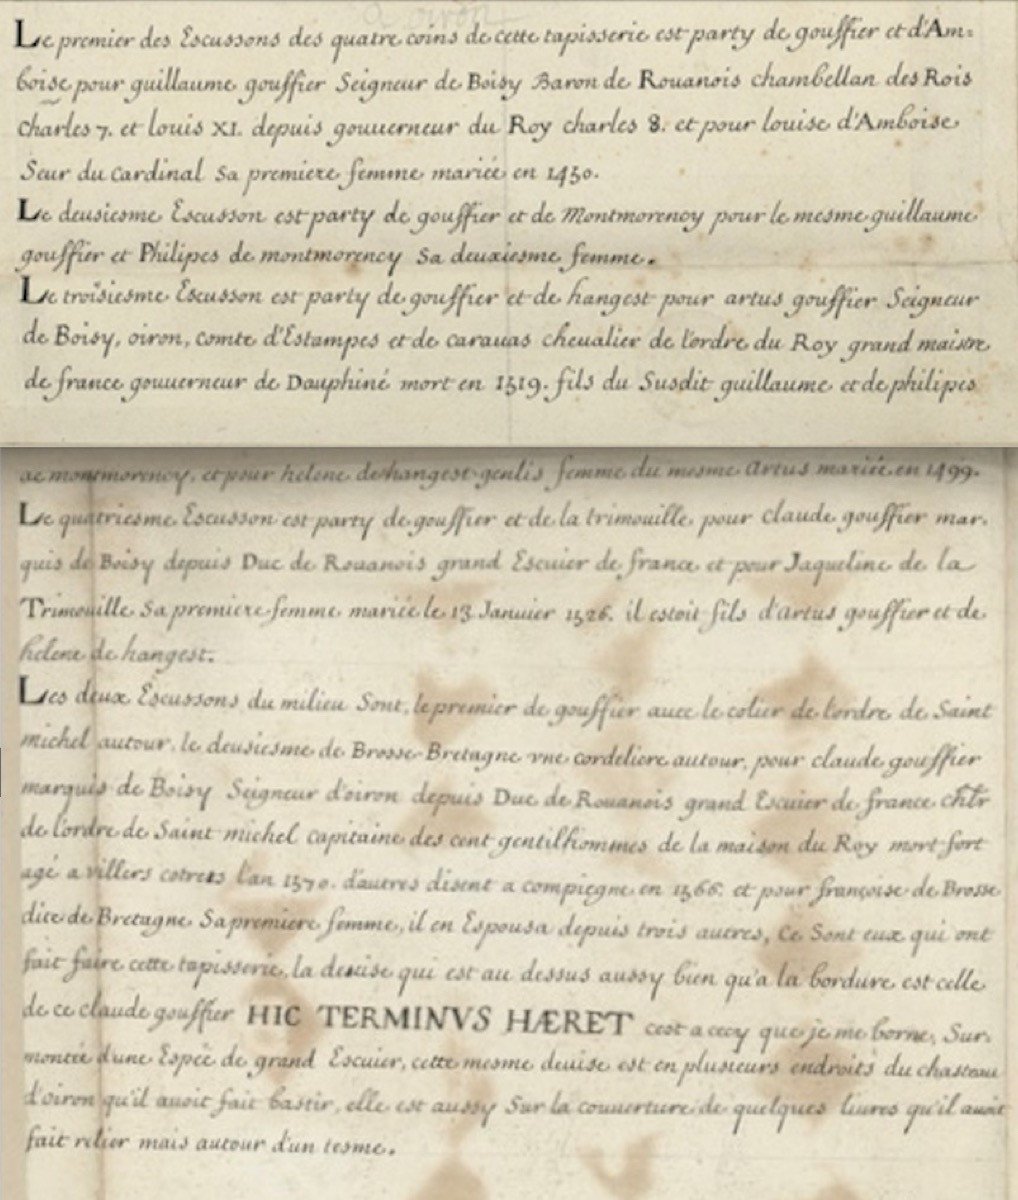 a oiron
Le premier des Escussons des quatre coins de cette tapisserie est party de gouffier et d'Am-
boise pour guillaume gouffier Seigneur de Boisy Baron de Rouanois chambellan des Rois
Charles 7. et louis XI. depuis gouuerneur du Roy charles 8. et pour louise d'Amboise
Seur du Cardinal Sa premiere femme mariée en 1450.
Le deusiesme Escusson est party de gouffier et de Montmorency pour le mesme guillaume
gouffier et Philipes de montmorency Sa deuxiesme femme.
Le troisiesme Escusson est party de gouffier et de hangest pour artus gouffier Seigneur
de Boisy, oiron, comte d'Estampes et de carauas cheualier de l'ordre du Roy grand maistre
de france gouuerneur de Dauphiné mort en 1519. fils du Susdit guillaume et de philipes
de montmorency, et pour helene de hangest-genlis femme du mesme Artus mariée en 1499.
Le quatriesme Escusson est party de gouffier et de la trimouille pour claude gouffier mar-
quis de Boisy depuis Duc de Rouanois grand Escuier de france et pour Jaqueline de la
Trimouille Sa premiere femme mariée le 13 Januier 1526. il estoit fils d'artus gouffier et de
helene de hangest.
Les deux Escussons du milieu Sont, le premier de gouffier auec le colier de l'ordre de Saint
michel autour, le deusiesme de Brosse-Bretagne vne cordeliere autour, pour claude gouffier
marquis de Boisy Seigneur d'oiron depuis Duc de Rouanois grand Escuier de france chlr
de l'ordre de Saint michel capitaine des cent gentilhommes de la maison du Roy mort fort
agé a villers cotrets l'an 1570. d'autres disent a compiegne en 1566. et pour françoise de Brosse
dite de Bretagne Sa premiere femme, il en Espousa depuis trois autres, Ce Sont eux qui ont
fait faire cette tapisserie, la deuise qui est au dessus aussy bien qu'a la bordure est celle
de ce claude gouffier HIC TERMINVS HÆRET cest a cecy que je me borne, Sur-
montée d'une Espée de grand Escuier, cette mesme deuise est en plusieurs endroits du chasteau
d'oiron qu'il auoit fait bastir, elle est aussy Sur la couuerture de quelques liures qu'il auoit
fait relier mais autour d'un tesme.